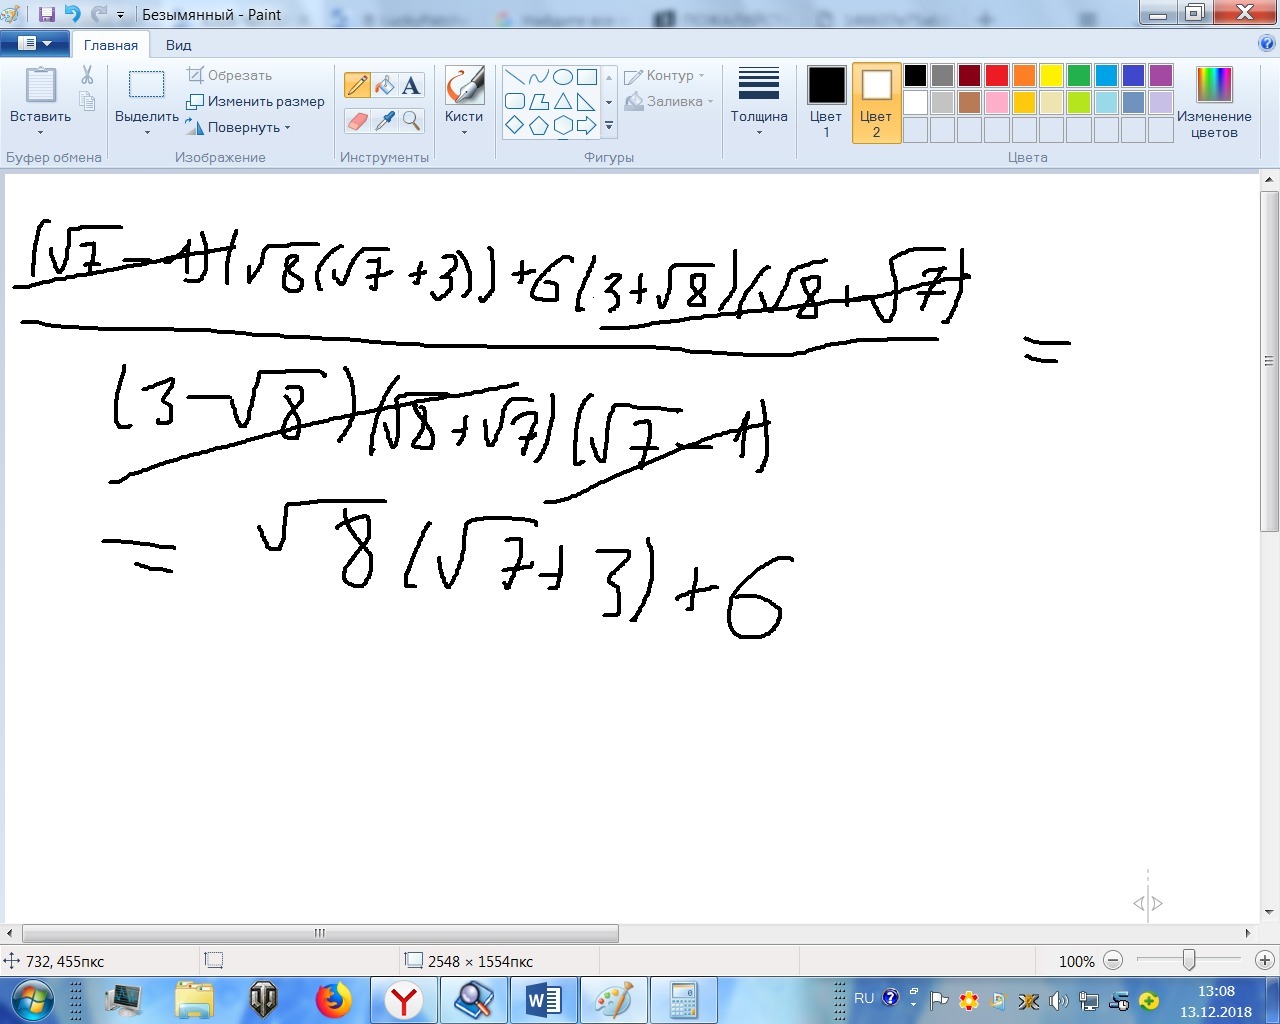 Безымянный - Paint
Главная Вид
Вставить
Буфер обмена
Выделить
Обрезать
Изменить размер
Повернуть
Изображение
Инструменты
Кисти
Контур
Заливка
Фигуры
Толщина
Цвет 1
Цвет 2
Изменение цветов
Цвета
(√7 - 1)(√8(√7 + 3)) + 6(3 + √8)(√8 + √7)
=
(3 - √8)(√8 + √7)(√7 - 1)
= √8(√7 + 3) + 6
732, 455пкс
2548 × 1554пкс
100%
RU
13:08
13.12.2018